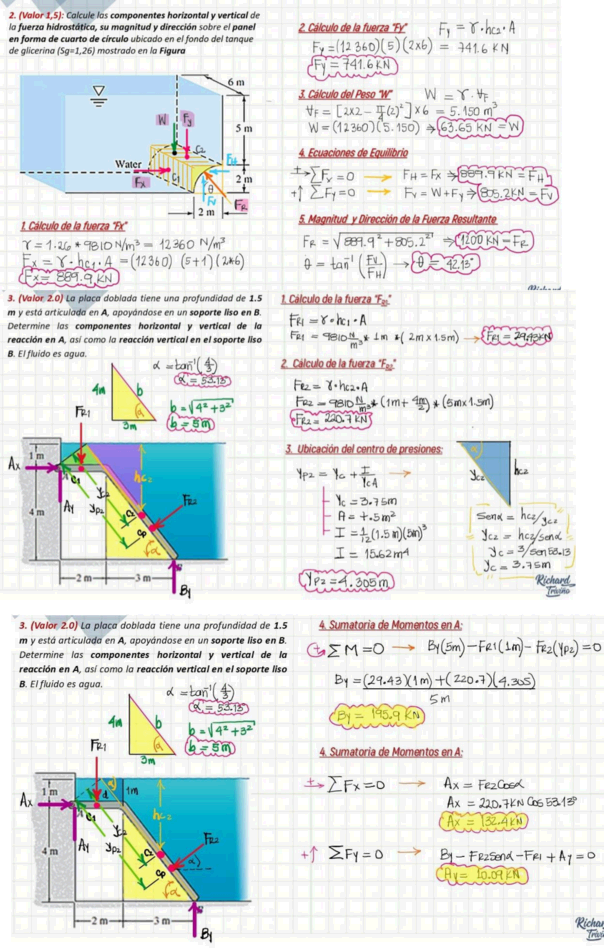 2. (Valor 1,5): Calcule las componentes horizontal y vertical de
la fuerza hidrostática, su magnitud y dirección sobre el panel
en forma de cuarto de círculo ubicado en el fondo del tanque
de glicerina (Sg=1,26) mostrado en la Figura
6 m
5 m
W
Fy
C2
Water
FH
Fx
C1
2 m
θ
Fv
FR
2 m
1. Cálculo de la fuerza "Fx"
γ = 1.26 * 9810 N/m³ = 12360 N/m³
Fx = γ · hc1 · A = (12360) (5+1) (2*6)
Fx = 889.9 KN
2. Cálculo de la fuerza "Fy"
Fy = γ · hc2 · A
Fy = (12 360)(5)(2x6) = 741.6 KN
Fy = 741.6 KN
3. Cálculo del Peso "W"
W = γ · ∀F
∀F = [2x2 - π/4 (2)²] x 6 = 5.150 m³
W = (12360)(5.150) → 63.65 KN = W
4. Ecuaciones de Equilibrio
+→ ΣFx = 0 → FH = Fx → 889.9 KN = FH
+↑ ΣFy = 0 → Fv = W + Fy → 805.2 KN = Fv
5. Magnitud y Dirección de la Fuerza Resultante
FR = √889.9² + 805.2² → 1200 KN = FR
θ = tan⁻¹ (Fv/FH) → θ = 42.13°
3. (Valor 2.0) La placa doblada tiene una profundidad de 1.5
m y está articulada en A, apoyándose en un soporte liso en B.
Determine las componentes horizontal y vertical de la
reacción en A, así como la reacción vertical en el soporte liso
B. El fluido es agua.
α = tan⁻¹(4/3)
α = 53.13
4m
b
α
3m
b = √4² + 3²
b = 5m
FR1
1 m
Ax
C1
hc2
Yc2
Ay
Yp2
C2
FR2
4 m
Cp
α
2 m
3 m
By
1. Cálculo de la fuerza "FR1"
FR1 = γ · hc1 · A
FR1 = 9810 N/m³ * 1m * (2m x 1.5m) → FR1 = 29.43 KN
2. Cálculo de la fuerza "FR2"
FR2 = γ · hc2 · A
FR2 = 9810 N/m³ * (1m + 4m/2) * (5m x 1.5m)
FR2 = 220.7 KN
3. Ubicación del centro de presiones:
Yp2 = Yc + I/YcA →
Yc = 3.75m
A = 7.5m²
I = 1/12 (1.5m)(5m)³
I = 15.62 m⁴
Yp2 = 4.305m
α
Yc2
hc2
Senα = hc2/yc2
Yc2 = hc2/senα
Yc = 3/sen53.13
Yc = 3.75m
Richard
Triviño
3. (Valor 2.0) La placa doblada tiene una profundidad de 1.5
m y está articulada en A, apoyándose en un soporte liso en B.
Determine las componentes horizontal y vertical de la
reacción en A, así como la reacción vertical en el soporte liso
B. El fluido es agua.
α = tan⁻¹(4/3)
α = 53.13
4m
b
α
3m
b = √4² + 3²
b = 5m
FR1
1 m
d
1m
Ax
C1
hc2
Yc2
Ay
Yp2
C2
FR2
α
4 m
Cp
α
2 m
3 m
By
4. Sumatoria de Momentos en A:
+ ΣM = 0 → By(5m) - FR1(1m) - FR2(Yp2) = 0
By = (29.43)(1m) + (220.7)(4.305) / 5m
By = 195.9 KN
4. Sumatoria de Momentos en A:
+→ ΣFx = 0 → Ax = FR2Cosα
Ax = 220.7KN Cos 53.13°
Ax = 132.4KN
+↑ ΣFy = 0 → By - FR2Senα - FR1 + Ay = 0
Ay = 10.09 KN